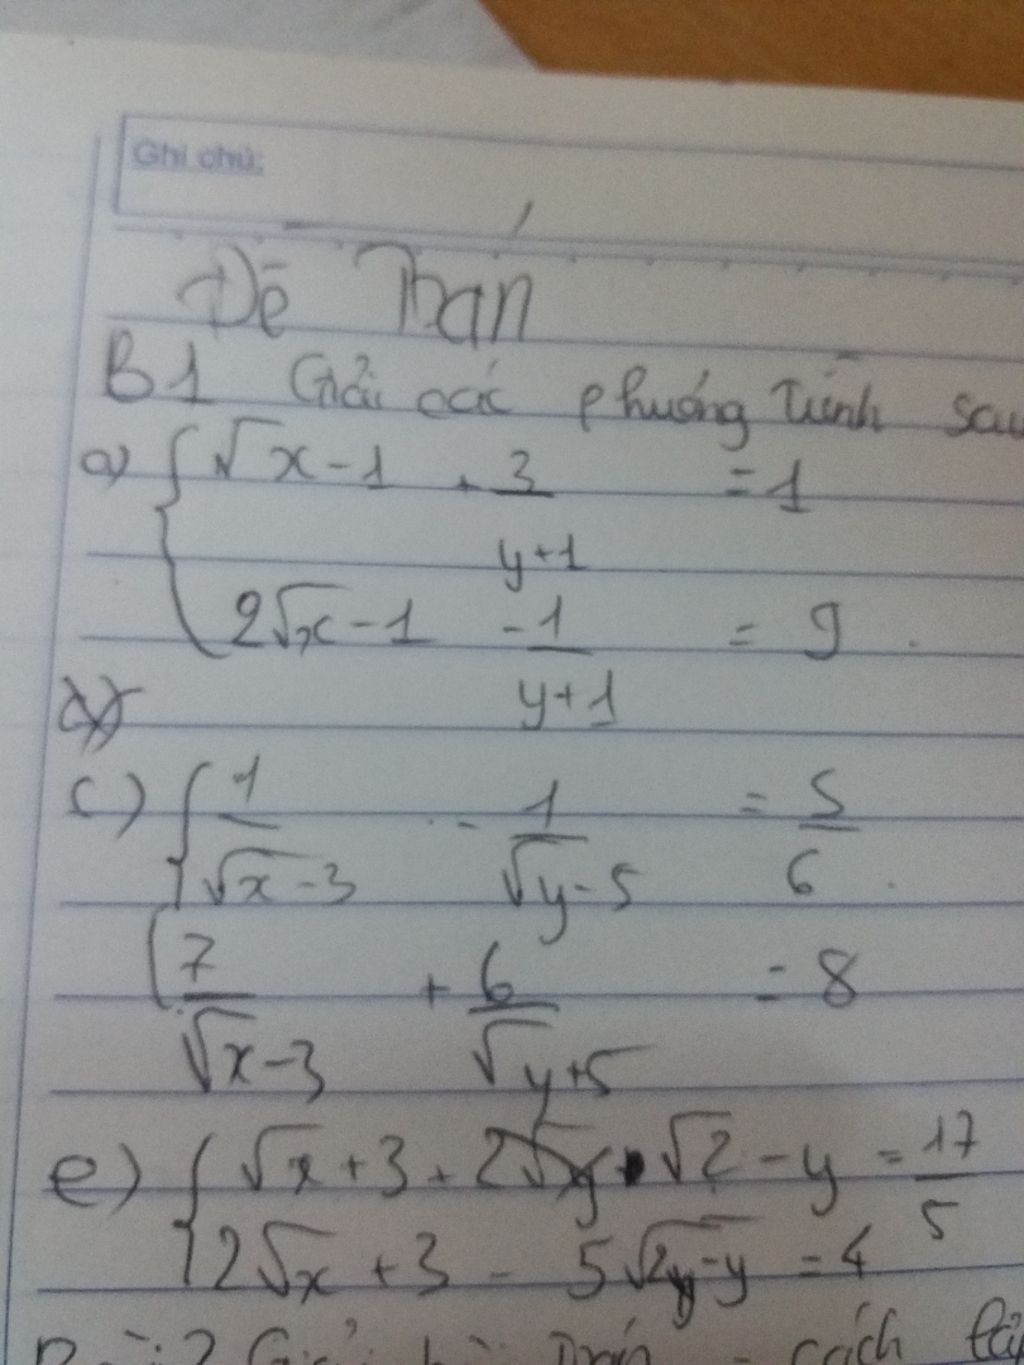 Ghi chú:
Đề Toán
B1 Giải các phương trình sau
a) { √x-1 + 3/(y+1) = 1
2√x-1 - 1/(y+1) = 9
c) { 1/(√x-3) - 1/(√y-5) = 5/6
7/(√x-3) + 6/(√y+5) = 8
e) { √x+3 + 2 √2-y = 17/5
2√x+3 - 5√2-y = 4
cách